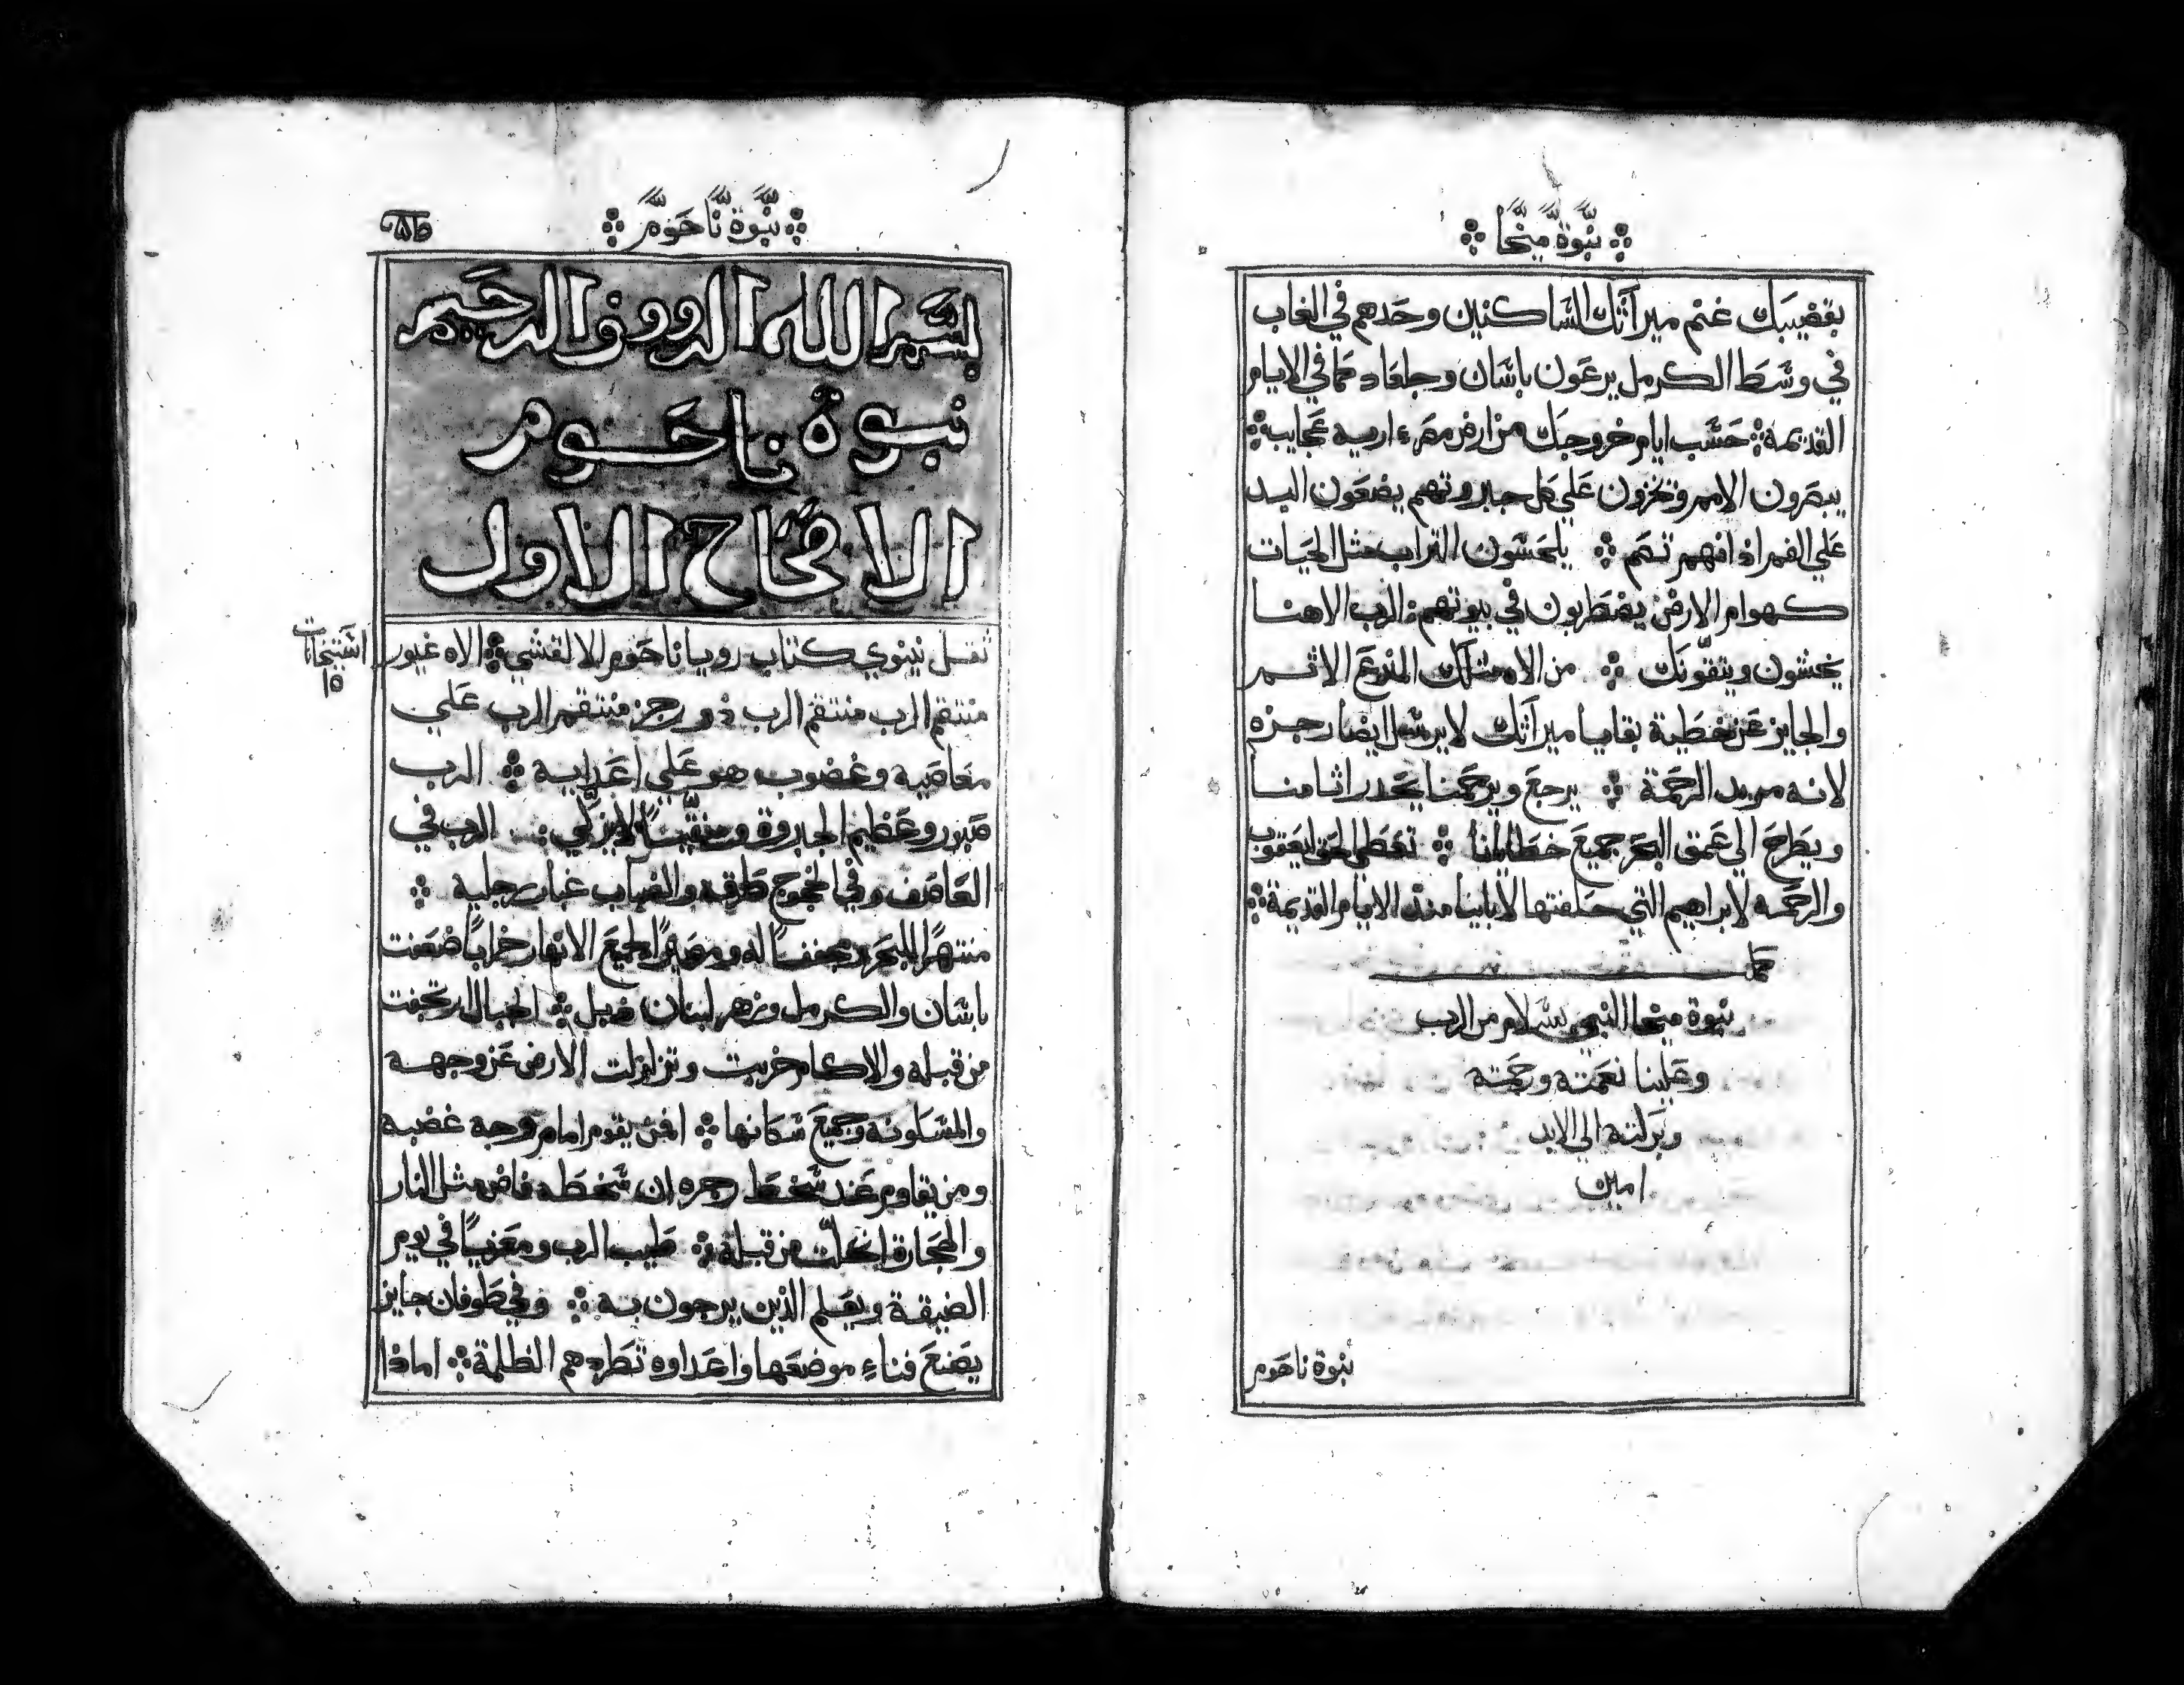 نبوة ميخا
بقضيبك غنم ميراثك الساكنين وحدهم في الغاب
في وسط الكرمل يرعون باسان وجلعاد كما في الايام
القديمة حسب ايام خروجك من ارض مصر اريه عجايبه
يبصرون الامم ويخزون علي كل جبروتهم يضعون اليد
علي الفم اذانهم تصم يلحسون التراب مثل الحيات
كهوام الارض يضطربون في بيوتهم الرب الاهنا
يخشون ويتقونك من الاه مثلك المنزع الاثم
والجايز عن خطية بقايا ميراثك لا يرسل ايضا رجزه
لانه مريد الرحمة يرجع ويرحمنا يجحد راثامنا
ويطرح الي عمق البحر جميع خطايانا تعطي الحق ليعقوب
والرحمه لابراهيم التي حلفتها لابائنا منذ الايام القديمة
كمل
نبوة ميخا النبي بسلام من الرب
وعلينا نعمته ورحمته
وبركته الي الابد
امين
نبوة ناحوم
نبوة ناحوم
بسم الله الرووف الرحيم
نبوة ناحوم
الاصحاح الاول
ثقل نينوي كتاب رويا ناحوم الالقشي الاه غيور
منتقم الرب منتقم الرب ذو رجز منتقم الرب علي
معاصيه وغضوب هو علي اعدايه الرب
صبور وعظيم الجبروة ومنقيا لا يزكي الرب في
العاصف وفي طرقه والضباب غبار رجليه
منتهرا البحر ومجففا له ومصيرا لجميع الانهار خرابا ضعفت
باسان والكرمل وزهر لبنان ذبل الجبال ارتجفت
من قبله والاكام خربت وتزلزلت الارض عن وجهه
والمسكونة وجميع سكانها افمن يقوم امام وجه غضبه
ومن يقاوم عند سخط رجزه ان سخطه فاض مثل النار
والحجارة انحلت من قبله طيب الرب ومعزيا في يوم
الضيقة ويعلم الذين يرجون به وفي طوفان جايز
يصنع فناء موضعها واعداوه تطردهم الظلمة اماذا